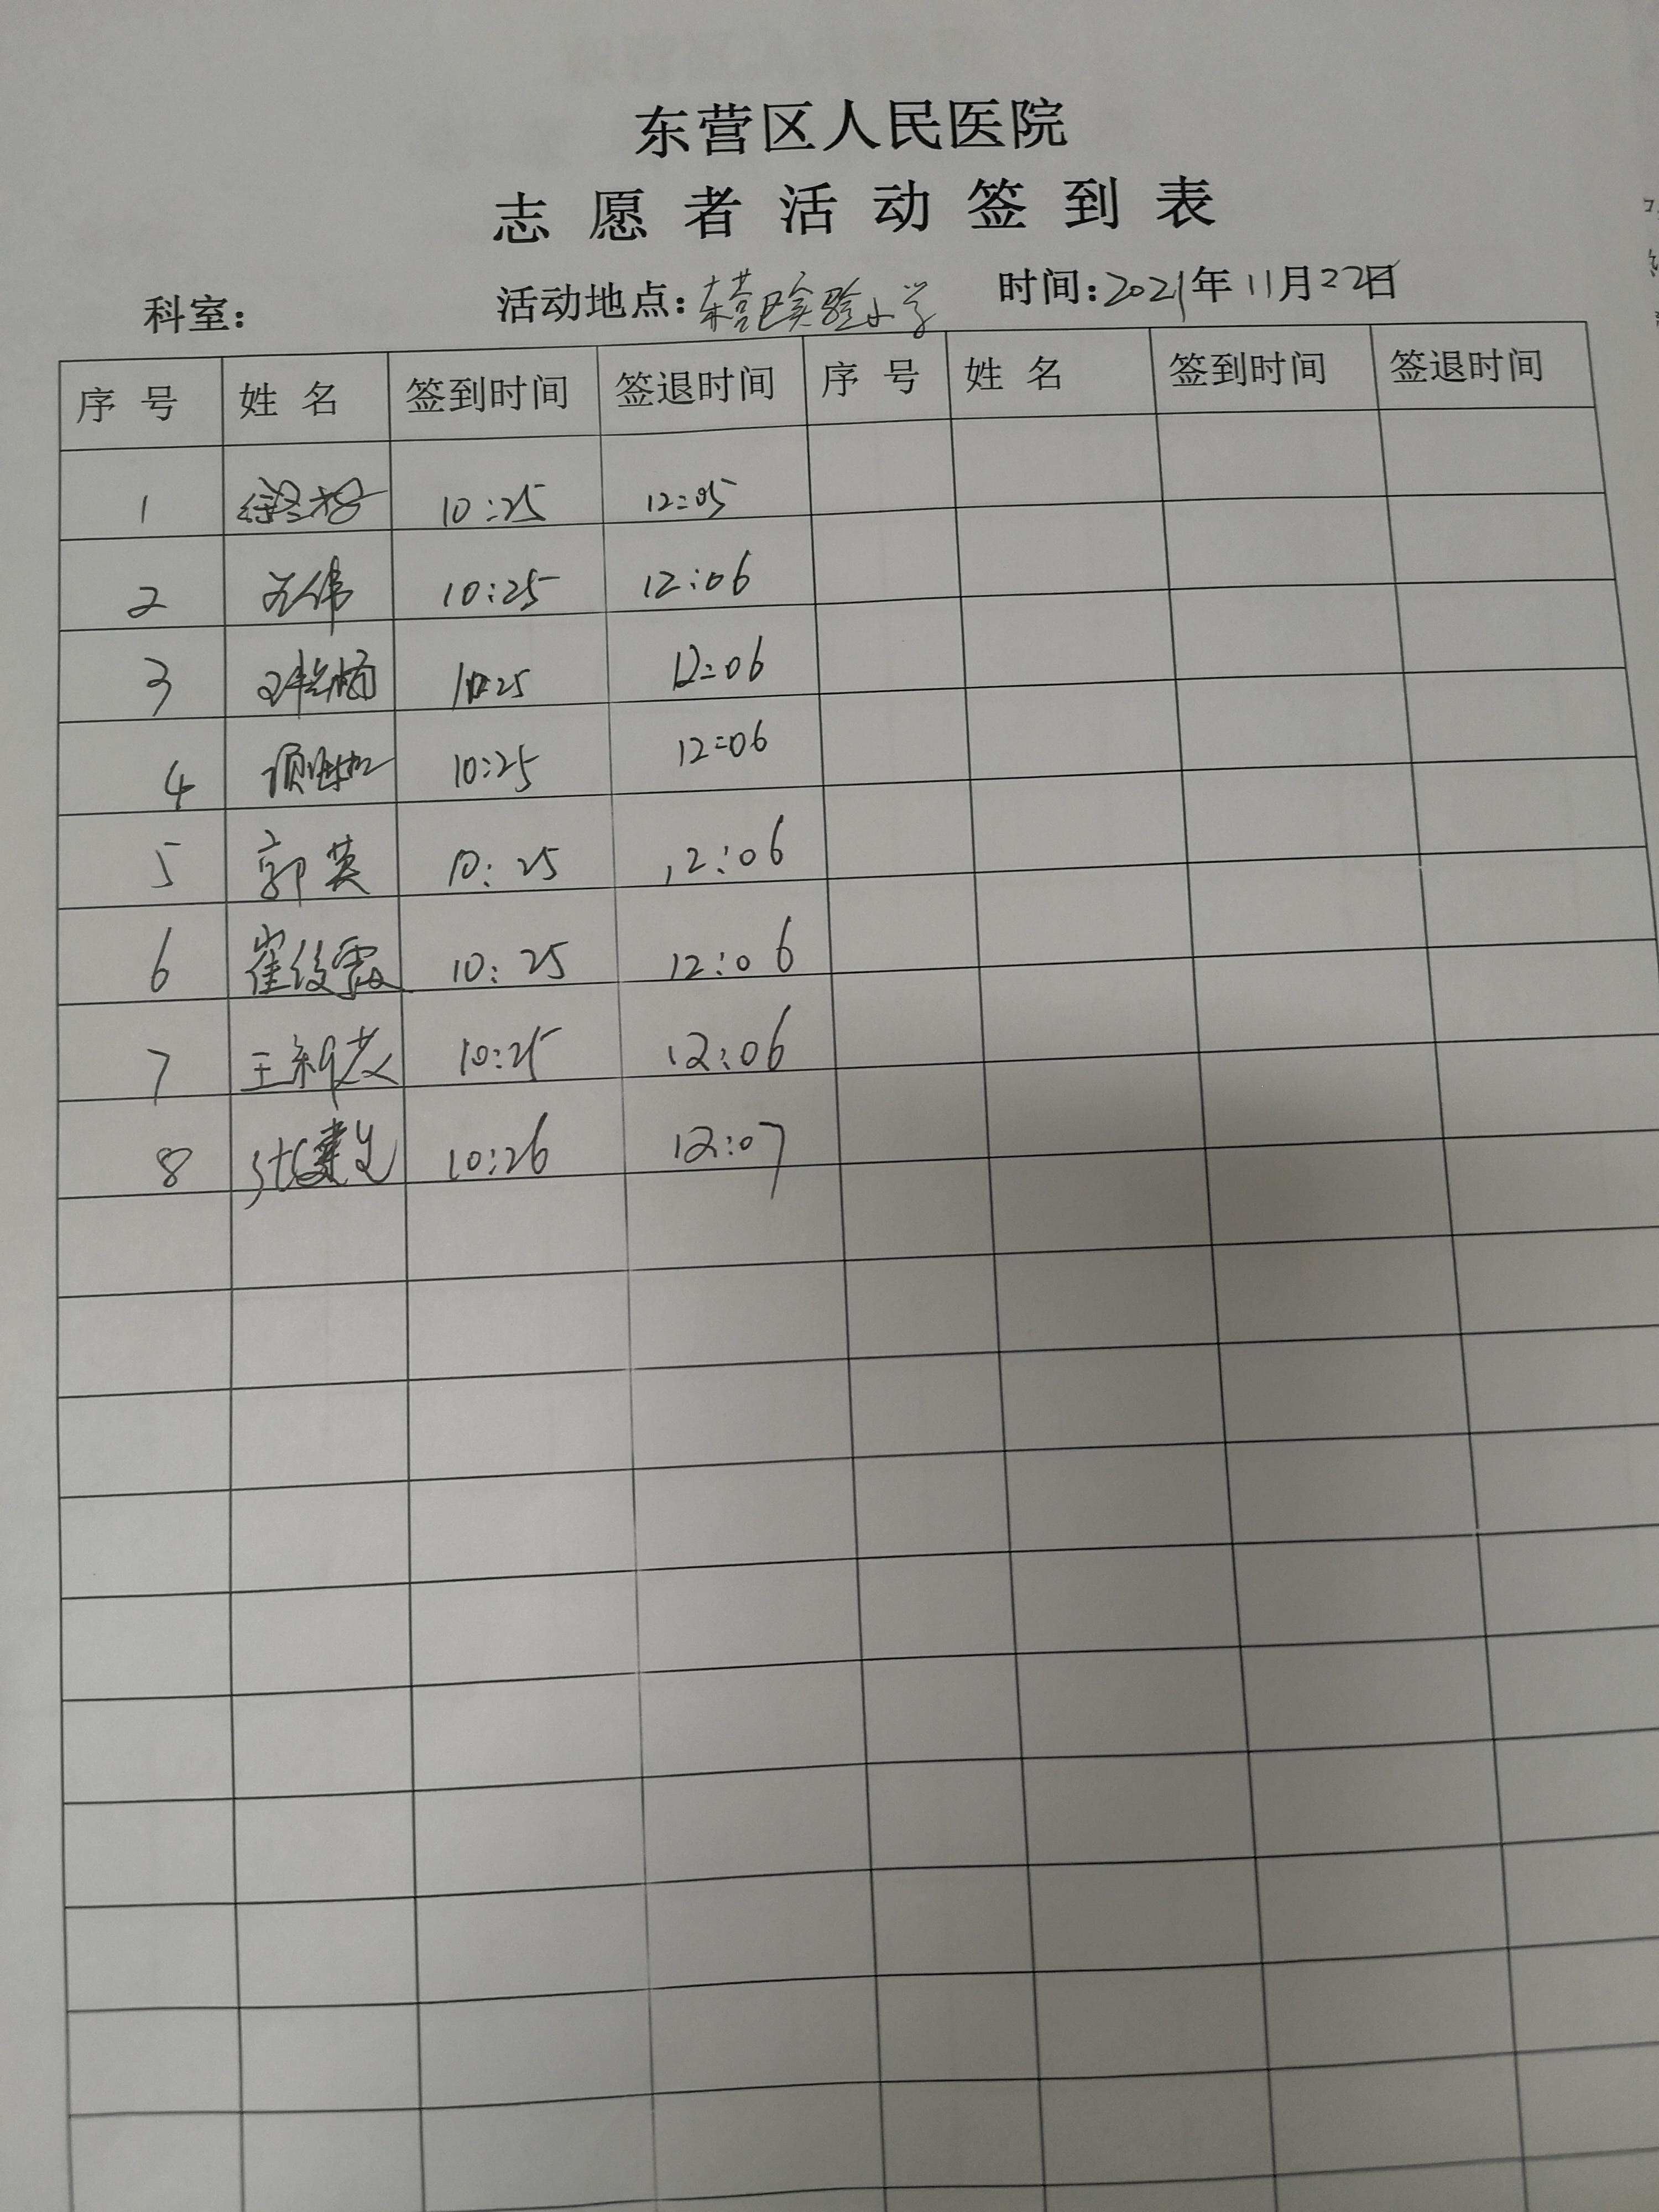 东营区人民医院
志愿者活动签到表
科室： 活动地点：东营区实验小学 时间：2021年11月22日
序号 姓名 签到时间 签退时间 序号 姓名 签到时间 签退时间
1 10:25 12:05
2 10:25 12:06
3 10:25 12:06
4 10:25 12:06
5 郭英 10:25 12:06
6 崔俊霞 10:25 12:06
7 王利 10:25 12:06
8 10:26 12:07